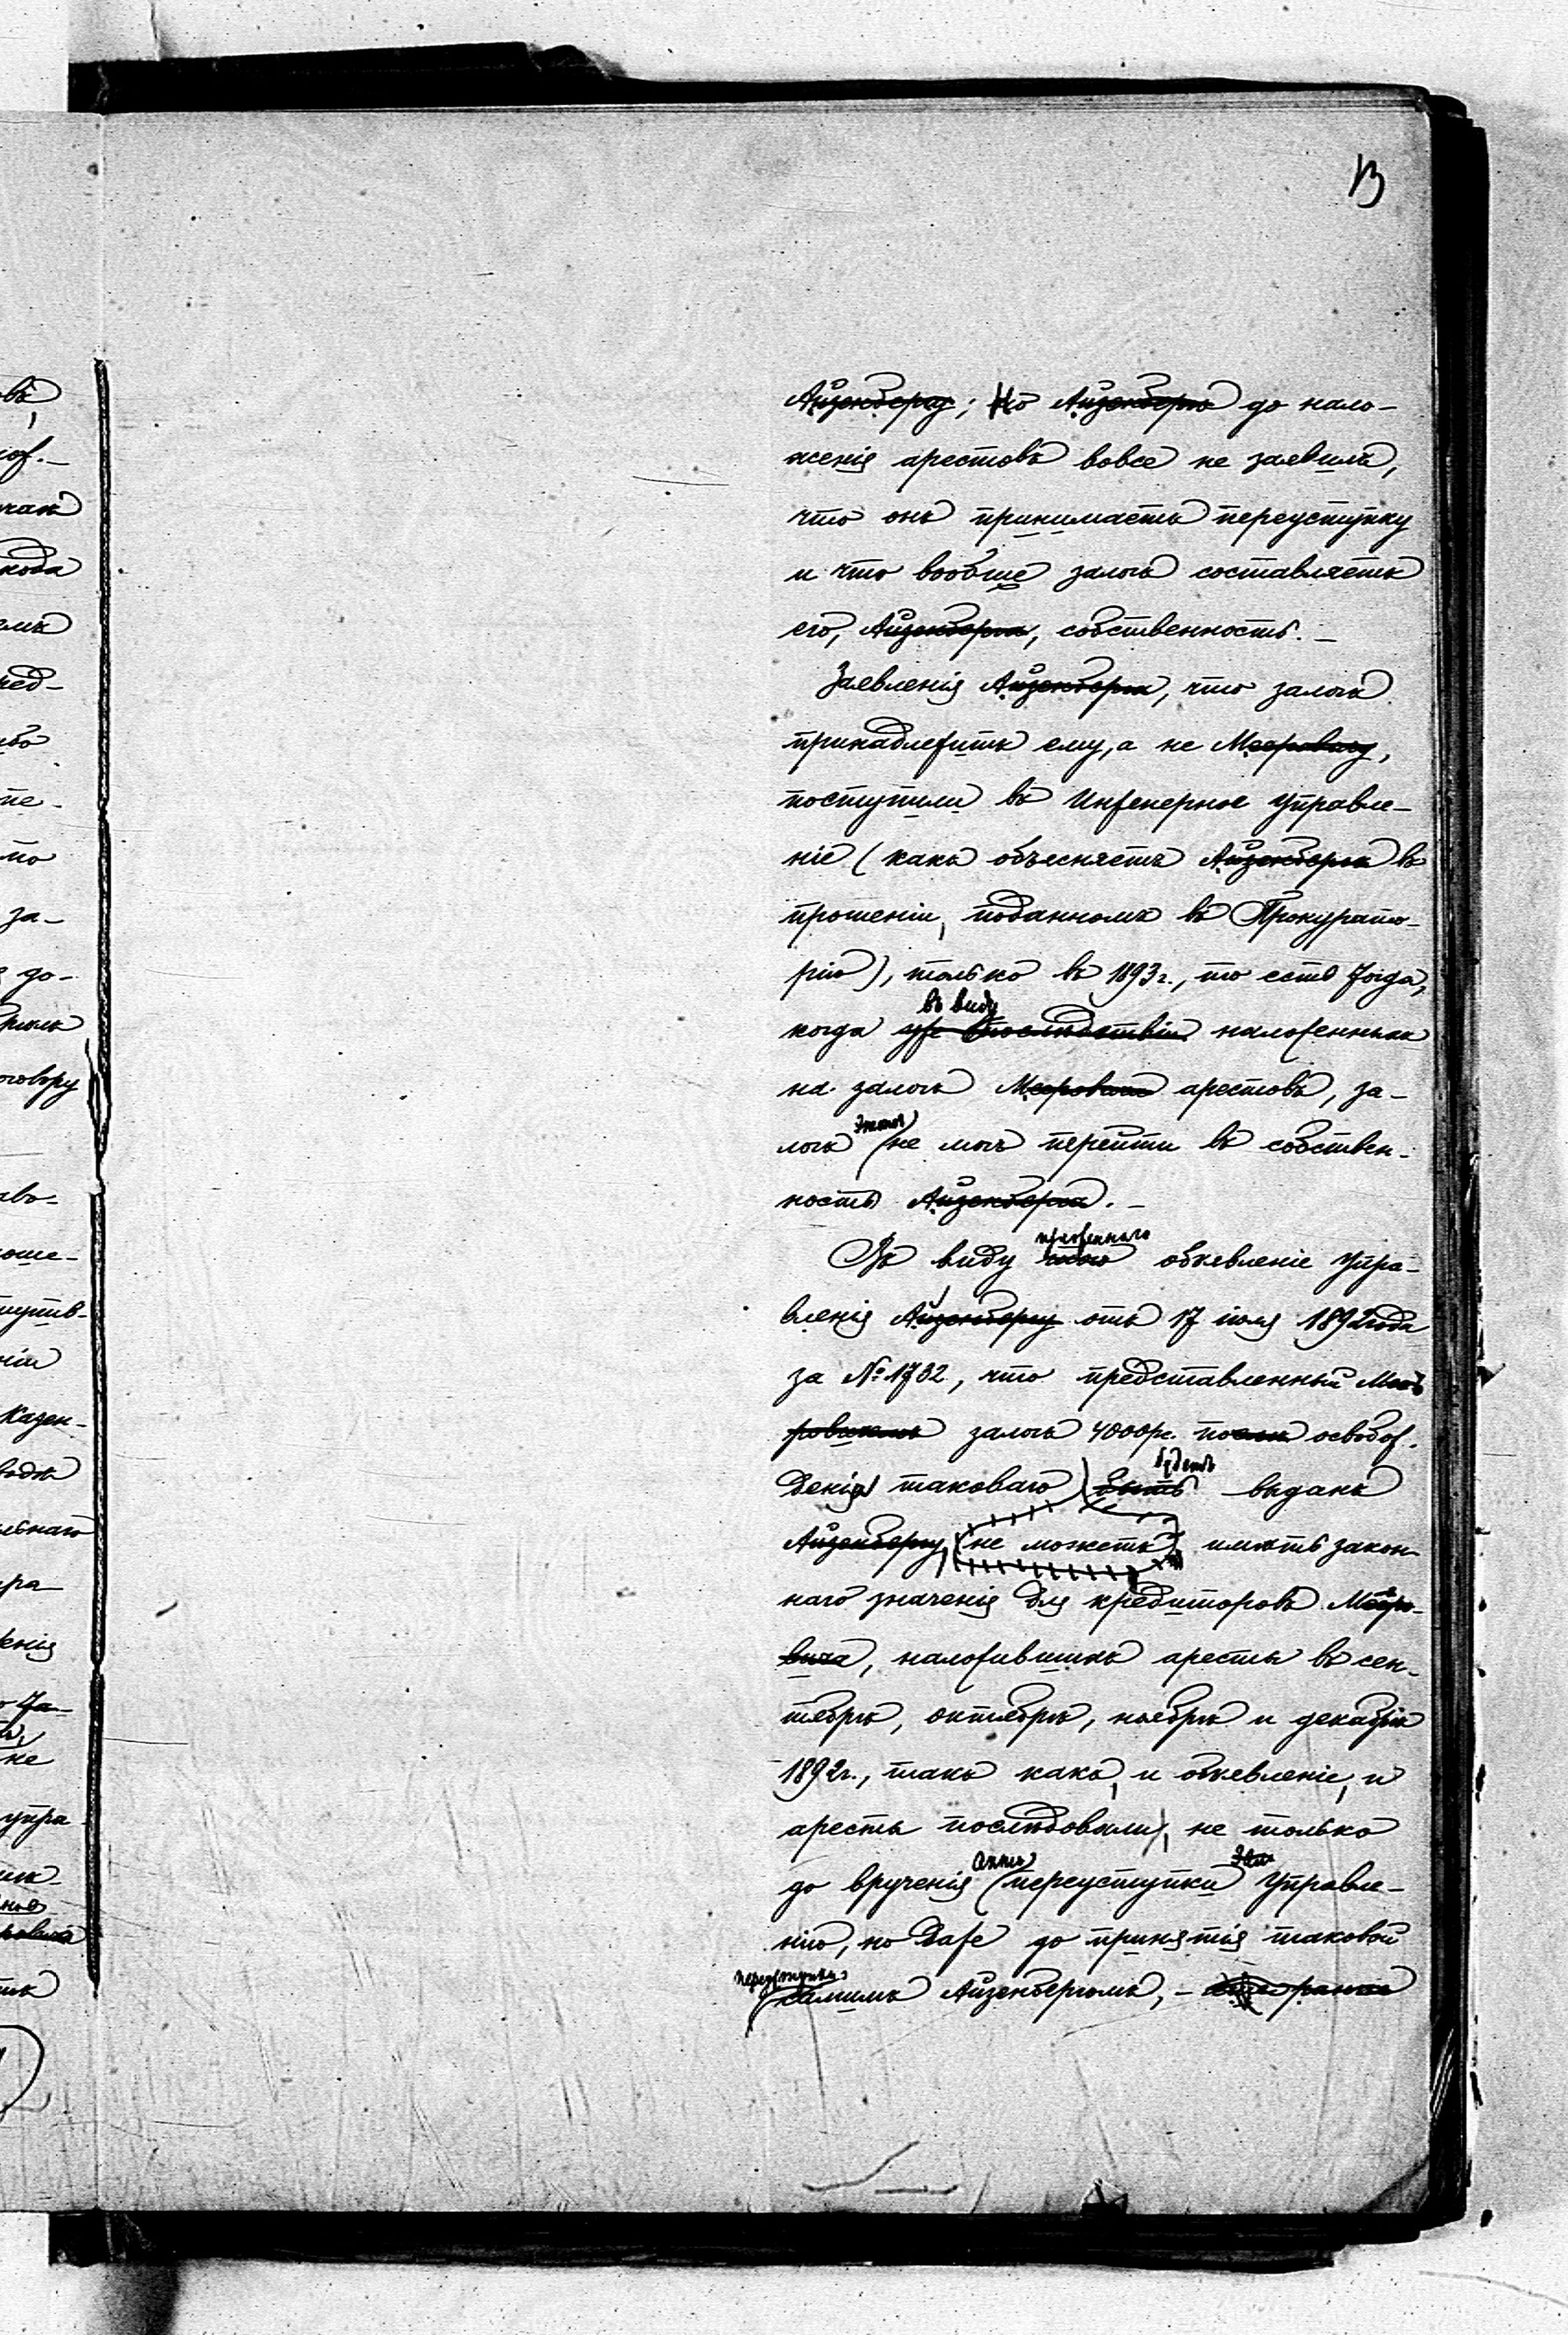 13
Айзенбергу; Но Айзенбергъ до нало-
женія арестовъ вовсе не заявилъ,
что онъ принимаетъ переуступку
и что вообще залогъ составляетъ
его, Айзенберга, собственность. —
Заявленія Айзенберга, что залогъ
принадлежитъ ему, а не Мееровичу,
поступили въ Инженерное Управле-
ніе (какъ объясняетъ Айзенбергъ въ
прошеніи, поданномъ въ Прокурато-
рію), только въ 1893 г., то есть тогда,
въ виду
когда уже вслѣдствіи наложенныхъ
на залогъ Мееровича арестовъ, за-
этотъ
логъ не могъ перейти въ собствен-
ность Айзенберга. —
Въ виду объявленіе Упра-
вленія Айзенбергу отъ 17 іюля 1892 года
за № 1732, что представленный Мее-
ровичемъ залогъ 4000 р. послѣ освобож-
будетъ
денія таковаго быть выданъ
Айзенбергу, не можетъ имѣть закон-
наго значенія для кредиторовъ Мееро-
вича, наложившихъ аресты въ сен-
тябрѣ, октябрѣ, ноябрѣ и декабрѣ
1892 г., такъ какъ, и объявленіе, и
аресты послѣдовали, не только
акта
до врученія переуступки Управле-
нію, но даже до принятія таковой
переуступки
самимъ Айзенбергомъ, — еще ранѣе